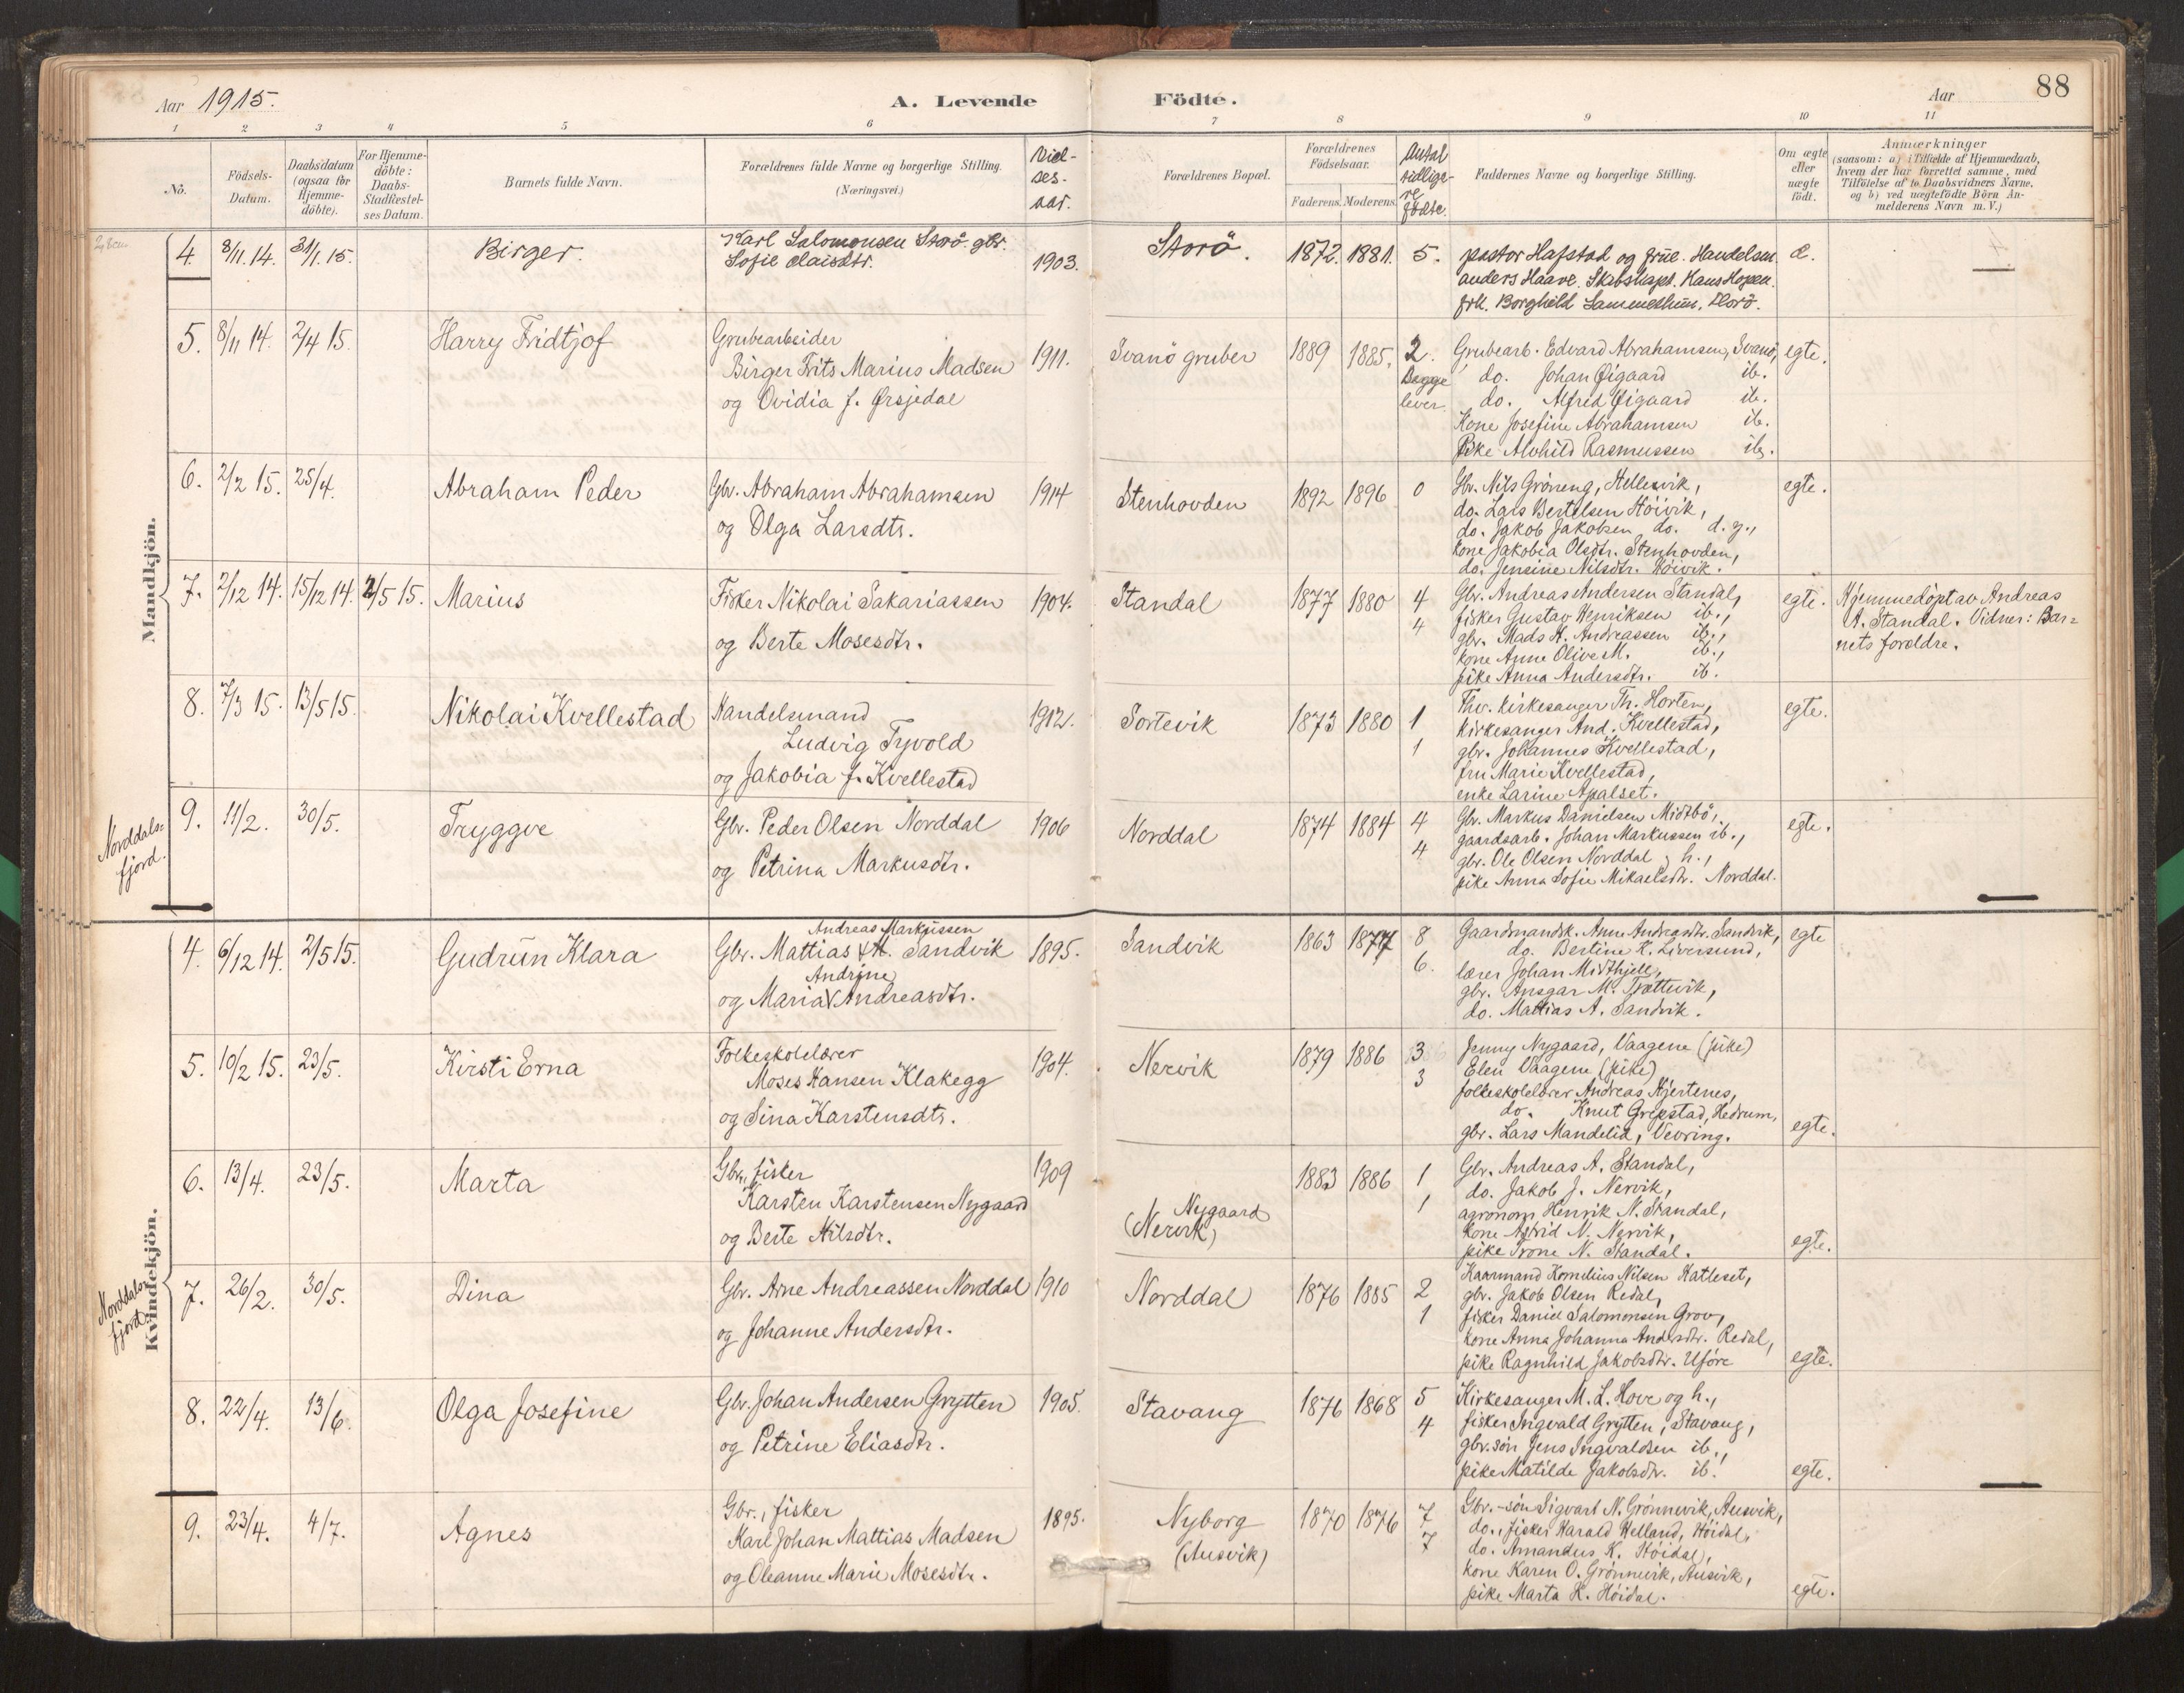 Aar 1915.
A. Levende Födte.
Aar
88
1 2 3 4 5 6 7 8 9 10 11
No.
Födsels-Datum.
Daabsdatum (ogsaa for Hjemme-döbte).
For Hjemme-döbte: Daabs-Stadfæstel-ses Datum.
Barnets fulde Navn.
Forældrenes fulde Navne og borgerlige Stilling.
(Næringsvei.)
Viel-ses-aar.
Forældrenes Bopæl.
Forældrenes Födselsaar.
Faderens. Moderens.
Antal tidlige-re fødte.
Faddernes Navne og borgerlige Stilling.
Om ægte eller uægte födt.
Anmærkninger
(saasom: a) i Tilfælde af Hjemmedaab, hvem der har forrettet samme, med Tilföielse af to Daabsvidners Navne, og b) ved uægtefödte Börn Anmelderens Navn m. V.)
Mandkjön.
4. 8/11. 14. 31/1. 15. Birger.
Karl Salomonsen Storö. gbr.
Sofie Claisdtr.
1903. Storö. 1872. 1881. 5.
pastor Hafstad og frue. Handelsm.
anders Haave. Skibskapt. Hans Hopen.
frk. Borghild Sammelhun. Florö.
e.
5. 8/11 14. 2/4 15. Harry Fridtjof
Grubearbeider
Birger Frits Marius Madsen
og Ovidia f. Ørsjedal
1911. Svanö gruber 1889 1885. 2.
Begge lever.
Grubearb. Edvard Abrahamsen, Svanö,
do. Johan Øigaard ib.
do. Alfred Øigaard ib.
Kone Josefine Abrahamsen ib.
Pike Alvhild Rasmussen ib.
egte.
6. 2/2 15. 25/4. Abraham Peder
Gbr. Abraham Abrahamsen
og Olga Larsdtr.
1914 Stenhovden 1892 1896 0
Gbr. Nils Gröneng, Hellesvik,
do. Lars Bertelsen Höivik,
do. Jakob Jakobsen do. d. y.,
kone Jakobia Olsdtr. Stenhovden,
do. Jensine Nilsdtr. Höivik.
egte.
7. 2/12 14. 15/12 14. 2/5 15. Marius
Fisker Nikolai Sakariassen
og Berte Mosesdtr.
1904. Standal 1877 1880 4
4
Gbr. Andreas Andersen Standal,
fisker Gustav Henriksen ib.,
gbr. Mads H. Andreassen ib.,
kone Anne Olive M. ib.,
pike Anna Andersdtr. ib.
egte.
Hjemmedöpt av Andreas
A. Standal. Vidner: Bar=
nets foreldre.
8. 7/3 15. 13/5 15. Nikolai Kvellestad
Handelsmand
Ludvig Tyvold
og Jakobia f. Kvellestad
1912. Sortevik 1873 1880 1
1
Thv. kirkesanger Th. Horten,
kirkesanger And. Kvellestad,
gbr. Johannes Kvellestad,
fru Marie Kvellestad,
enke Larine Apalset.
egte.
Norddals=
fjord.
9. 11/2. 30/5. Tryggve
Gbr. Peder Olsen Norddal
og Petrina Markusdtr.
1906 Norddal 1874 1884 4
4
Gbr. Markus Danielsen Midtbö,
gaardsarb. Johan Markussen ib.,
gbr. Ole Olsen Norddal g. h.,
pike Anna Sofie Mikaelsdtr. Norddal.
egte.
Kvindekjön.
4. 6/12 14. 2/5 15. Gudrun Klara
Andreas Markussen
Gbr. Mattias A. Sandvik
Andrine
og Maria Andreasdtr.
1895. Sandvik 1863 1877 8
6.
Gaardmandsk. Anne Andreasdtr. Sandvik,
do. Bertine K. Liversund,
lærer Johan Midthjell,
gbr. Ansgar M. Trættevik,
do. Mattias A. Sandvik.
egte
5. 10/2 15. 23/5. Kirsti Erna
Folkeskolelærer
Moses Hansen Klakegg
og Sina Karstensdtr.
1904. Nervik 1879 1886 3
3
Jenny Nygaard, Vaagene (pike)
Elen Vaagene (pike)
folkeskolelærer Andreas Hjertenes,
do. Knut Grepstad, Hedrum,
gbr. Lars Mandelid, Vevring.
egte.
6. 13/4. 23/5. Marta
Gbr., fisker
Karsten Karstensen Nygaard
og Berte Nilsdtr.
1909 Nygaard
(Nervik)
1883 1886 1
1
Gbr. Andreas A. Standal,
do. Jakob J. Nervik,
agronom Henrik N. Standal,
kone Astrid N. Nervik,
pike Trone N. Standal.
egte.
Norddals-
fjord.
7. 26/2. 30/5. Dina
Gbr. Arne Andreassen Norddal
og Johanne Andersdtr.
1910 Norddal 1876 1885 2
1
Kaarmand Kornelius Nilsen Katleset,
gbr. Jakob Olsen Redal,
fisker Daniel Salomonsen Grov,
kone Anna Johanna Andersdtr. Redal,
pike Ragnhild Jakobsdtr. Uföre
egte.
8. 22/4. 13/6. Olga Josefine
Gbr. Johan Andersen Grytten
og Petrine Eliasdtr.
1905. Stavang 1876 1868 5
4
Kirkesanger M. L. Hove og h.,
fisker Ingvald Grytten, Stavang,
gbr.sön Jens Ingvaldsen ib.,
pike Matilde Jakobsdtr. ib.
egte.
9. 23/4. 4/7. Agnes
Gbr., fisker
Karl Johan Mattias Madsen
og Oleanne Marie Mosesdtr.
1895. Nyborg
(Ausvik)
1870 1876 7
7
Gbr.-sön Sigvart N. Grönnevik, Ausvik,
do., fisker Harald Helland, Höidal,
do. Amandus K. Höidal,
kone Karen O. Grönnevik, Ausvik,
pike Marta K. Höidal.
egte.